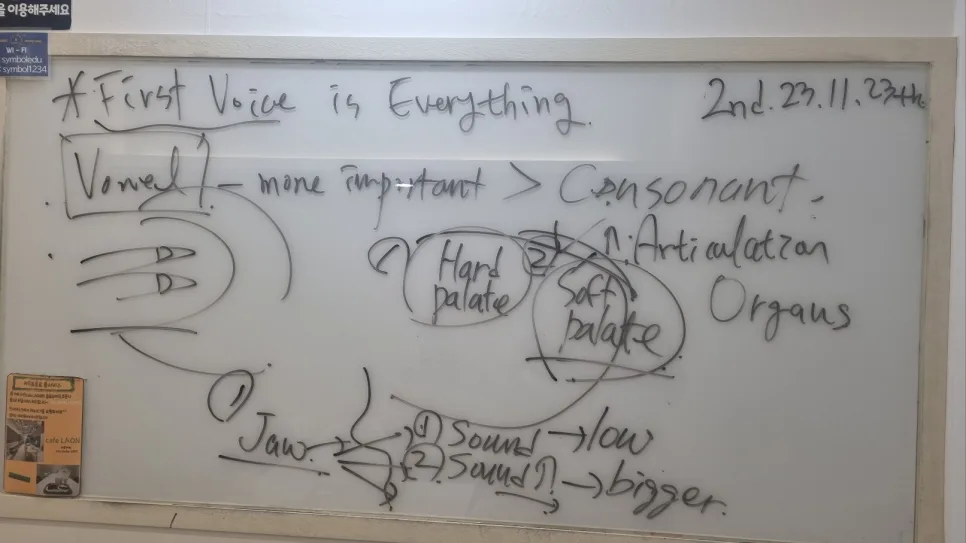 을 이용해주세요
WI-FI
symboledu
symbol1234
*First Voice is Everything.
2nd. 23.11.23th.
Vowel - more important > Consonant.
① Hard palate
② Soft palate
↑: Articulation
Organs
①
Jaw → ① Sound → low
② Sound ↑ → bigger.
cafe LAON